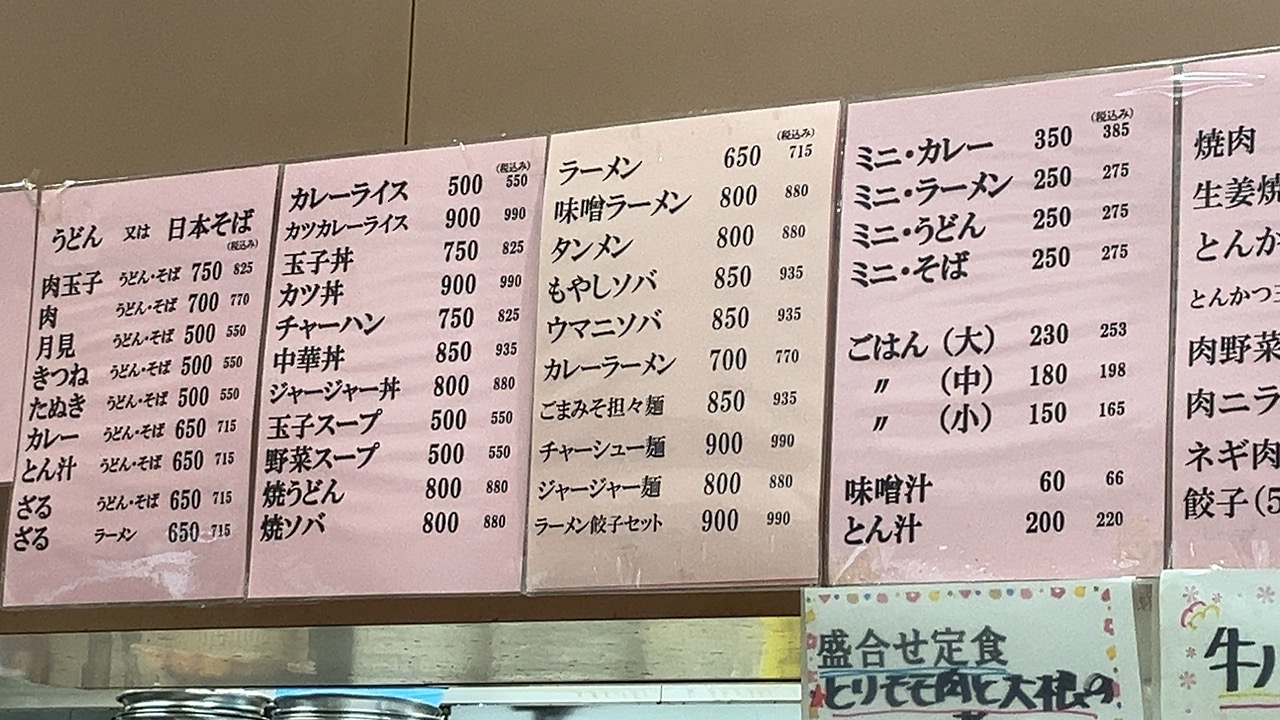 うどん 又は 日本そば
(税込み)
肉玉子 うどん・そば 750 825
肉 うどん・そば 700 770
月見 うどん・そば 500 550
きつね うどん・そば 500 550
たぬき うどん・そば 500 550
カレー うどん・そば 650 715
とん汁 うどん・そば 650 715
ざる うどん・そば 650 715
ざる ラーメン 650 715
(税込み)
カレーライス 500 550
カツカレーライス 900 990
玉子丼 750 825
カツ丼 900 990
チャーハン 750 825
中華丼 850 935
ジャージャー丼 800 880
玉子スープ 500 550
野菜スープ 500 550
焼うどん 800 880
焼ソバ 800 880
(税込み)
ラーメン 650 715
味噌ラーメン 800 880
タンメン 800 880
もやしソバ 850 935
ウマニソバ 850 935
カレーラーメン 700 770
ごまみそ担々麺 850 935
チャーシュー麺 900 990
ジャージャー麺 800 880
ラーメン餃子セット 900 990
(税込み)
ミニ・カレー 350 385
ミニ・ラーメン 250 275
ミニ・うどん 250 275
ミニ・そば 250 275
ごはん (大) 230 253
〃 (中) 180 198
〃 (小) 150 165
味噌汁 60 66
とん汁 200 220
焼肉
生姜焼
とんか
とんかつ
肉野菜
肉ニラ
ネギ肉
餃子(5
盛合せ定食
とりモモ肉と大根の
牛